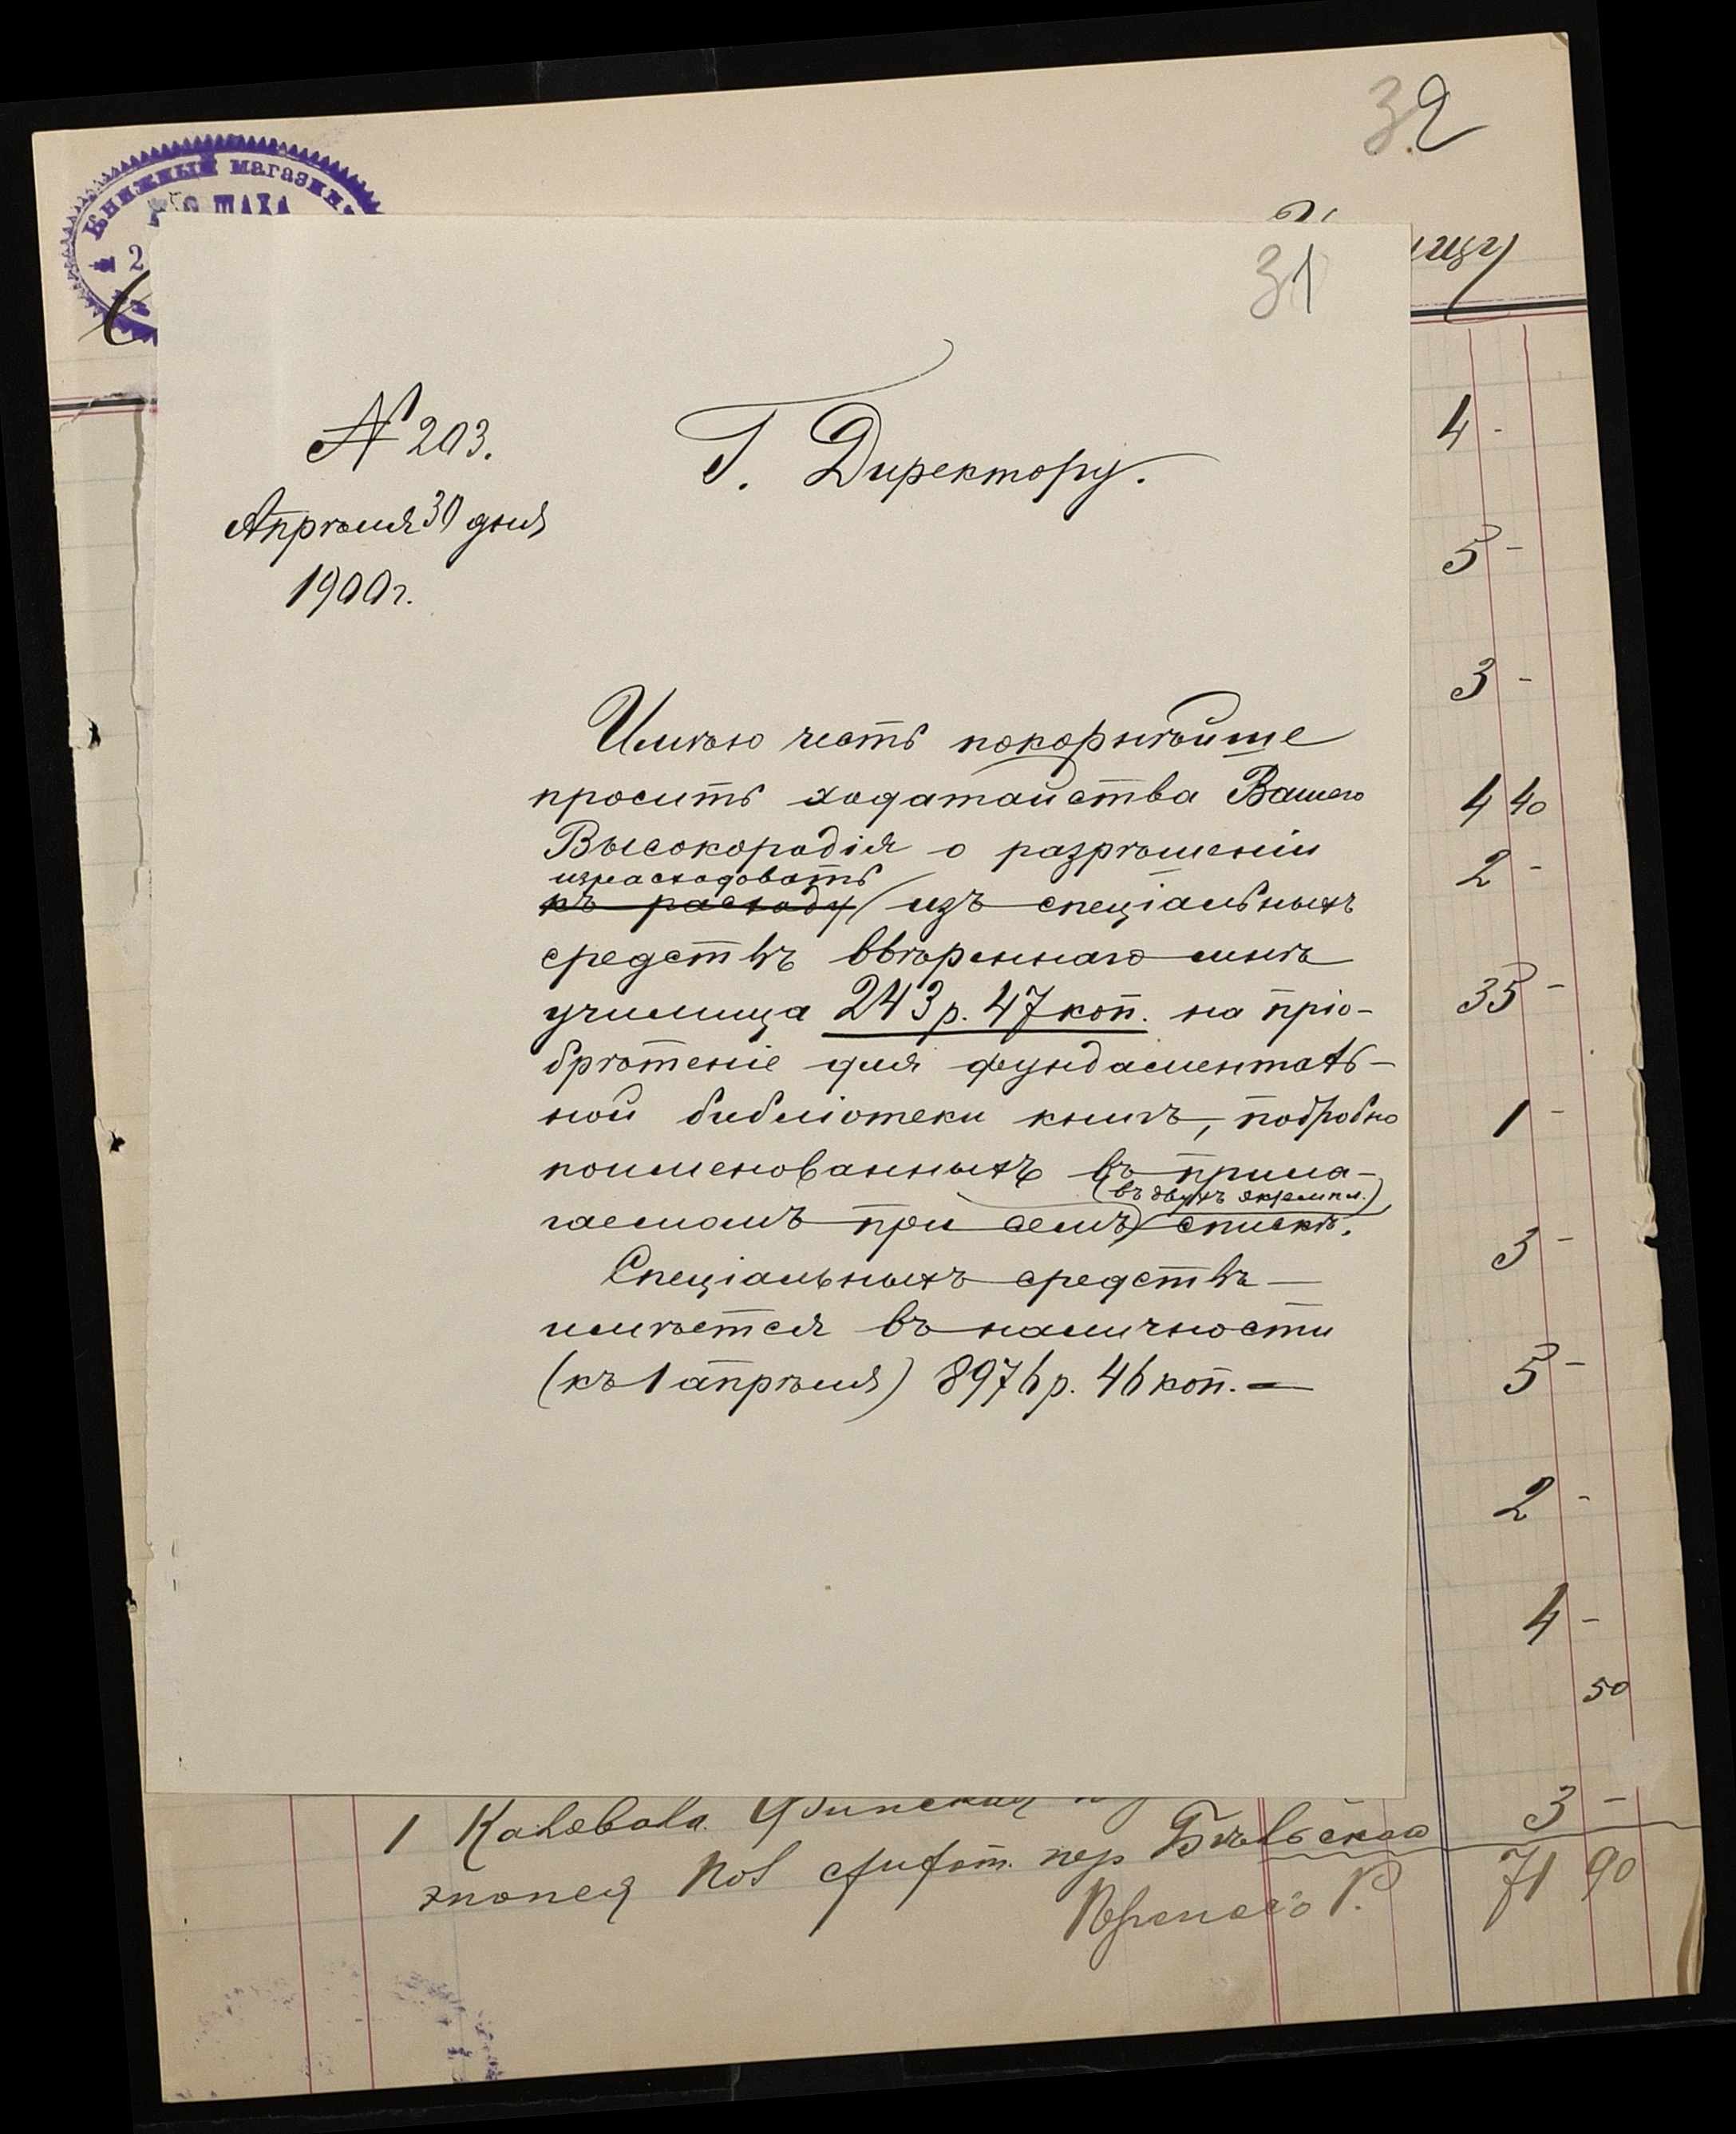 32
Книжный магазинъ
ШАХА
2
ищу
31
№ 203.
Г. Директору.
Апрѣля 30 дня
1900 г.
Имѣю честь покорнѣйше
просить ходатайства Вашего
Высокородія о разрѣшеніи
израсходовать
къ расходу изъ спеціальныхъ
средствъ ввѣреннаго мнѣ
училища 243 р. 47 коп. на прiо-
брѣтеніе для фундаменталь-
ной библіотеки книгъ, подробно
поименованныхъ въ прила-
(въ двухъ экземпл.)
гаемомъ при семъ спискѣ.
Спеціальныхъ средствъ —
имѣется въ наличности
(къ 1 апрѣля) 8976 р. 46 коп. —
4 -
5 -
3 -
4 40
2 -
35 -
1 -
3 -
5 -
2 -
4 -
50
3 -
1 Калевала Финская
эпопея пер Бѣльского
71 90